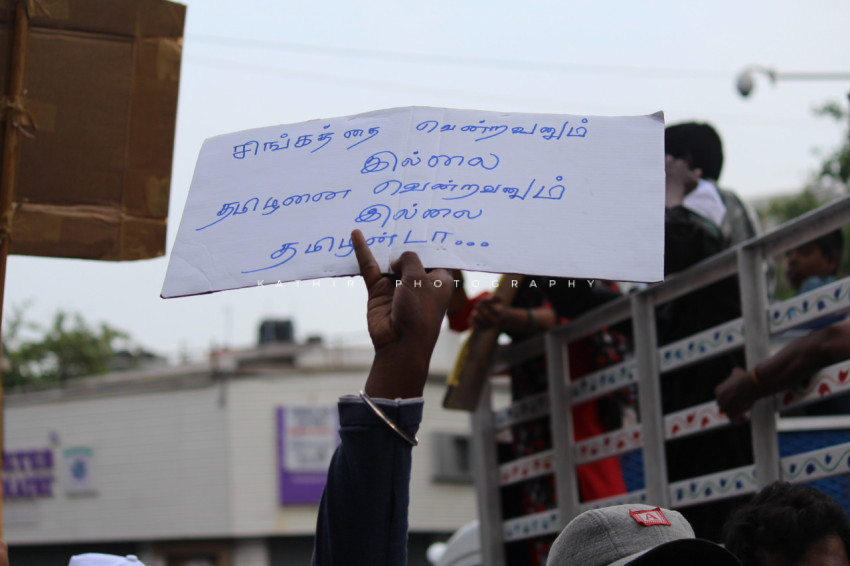 சிங்கத்தை வென்றவனும்
இல்லை
தமிழனை வென்றவனும்
இல்லை
தமிழன்டா...
KATHIR PHOTOGRAPHY
A